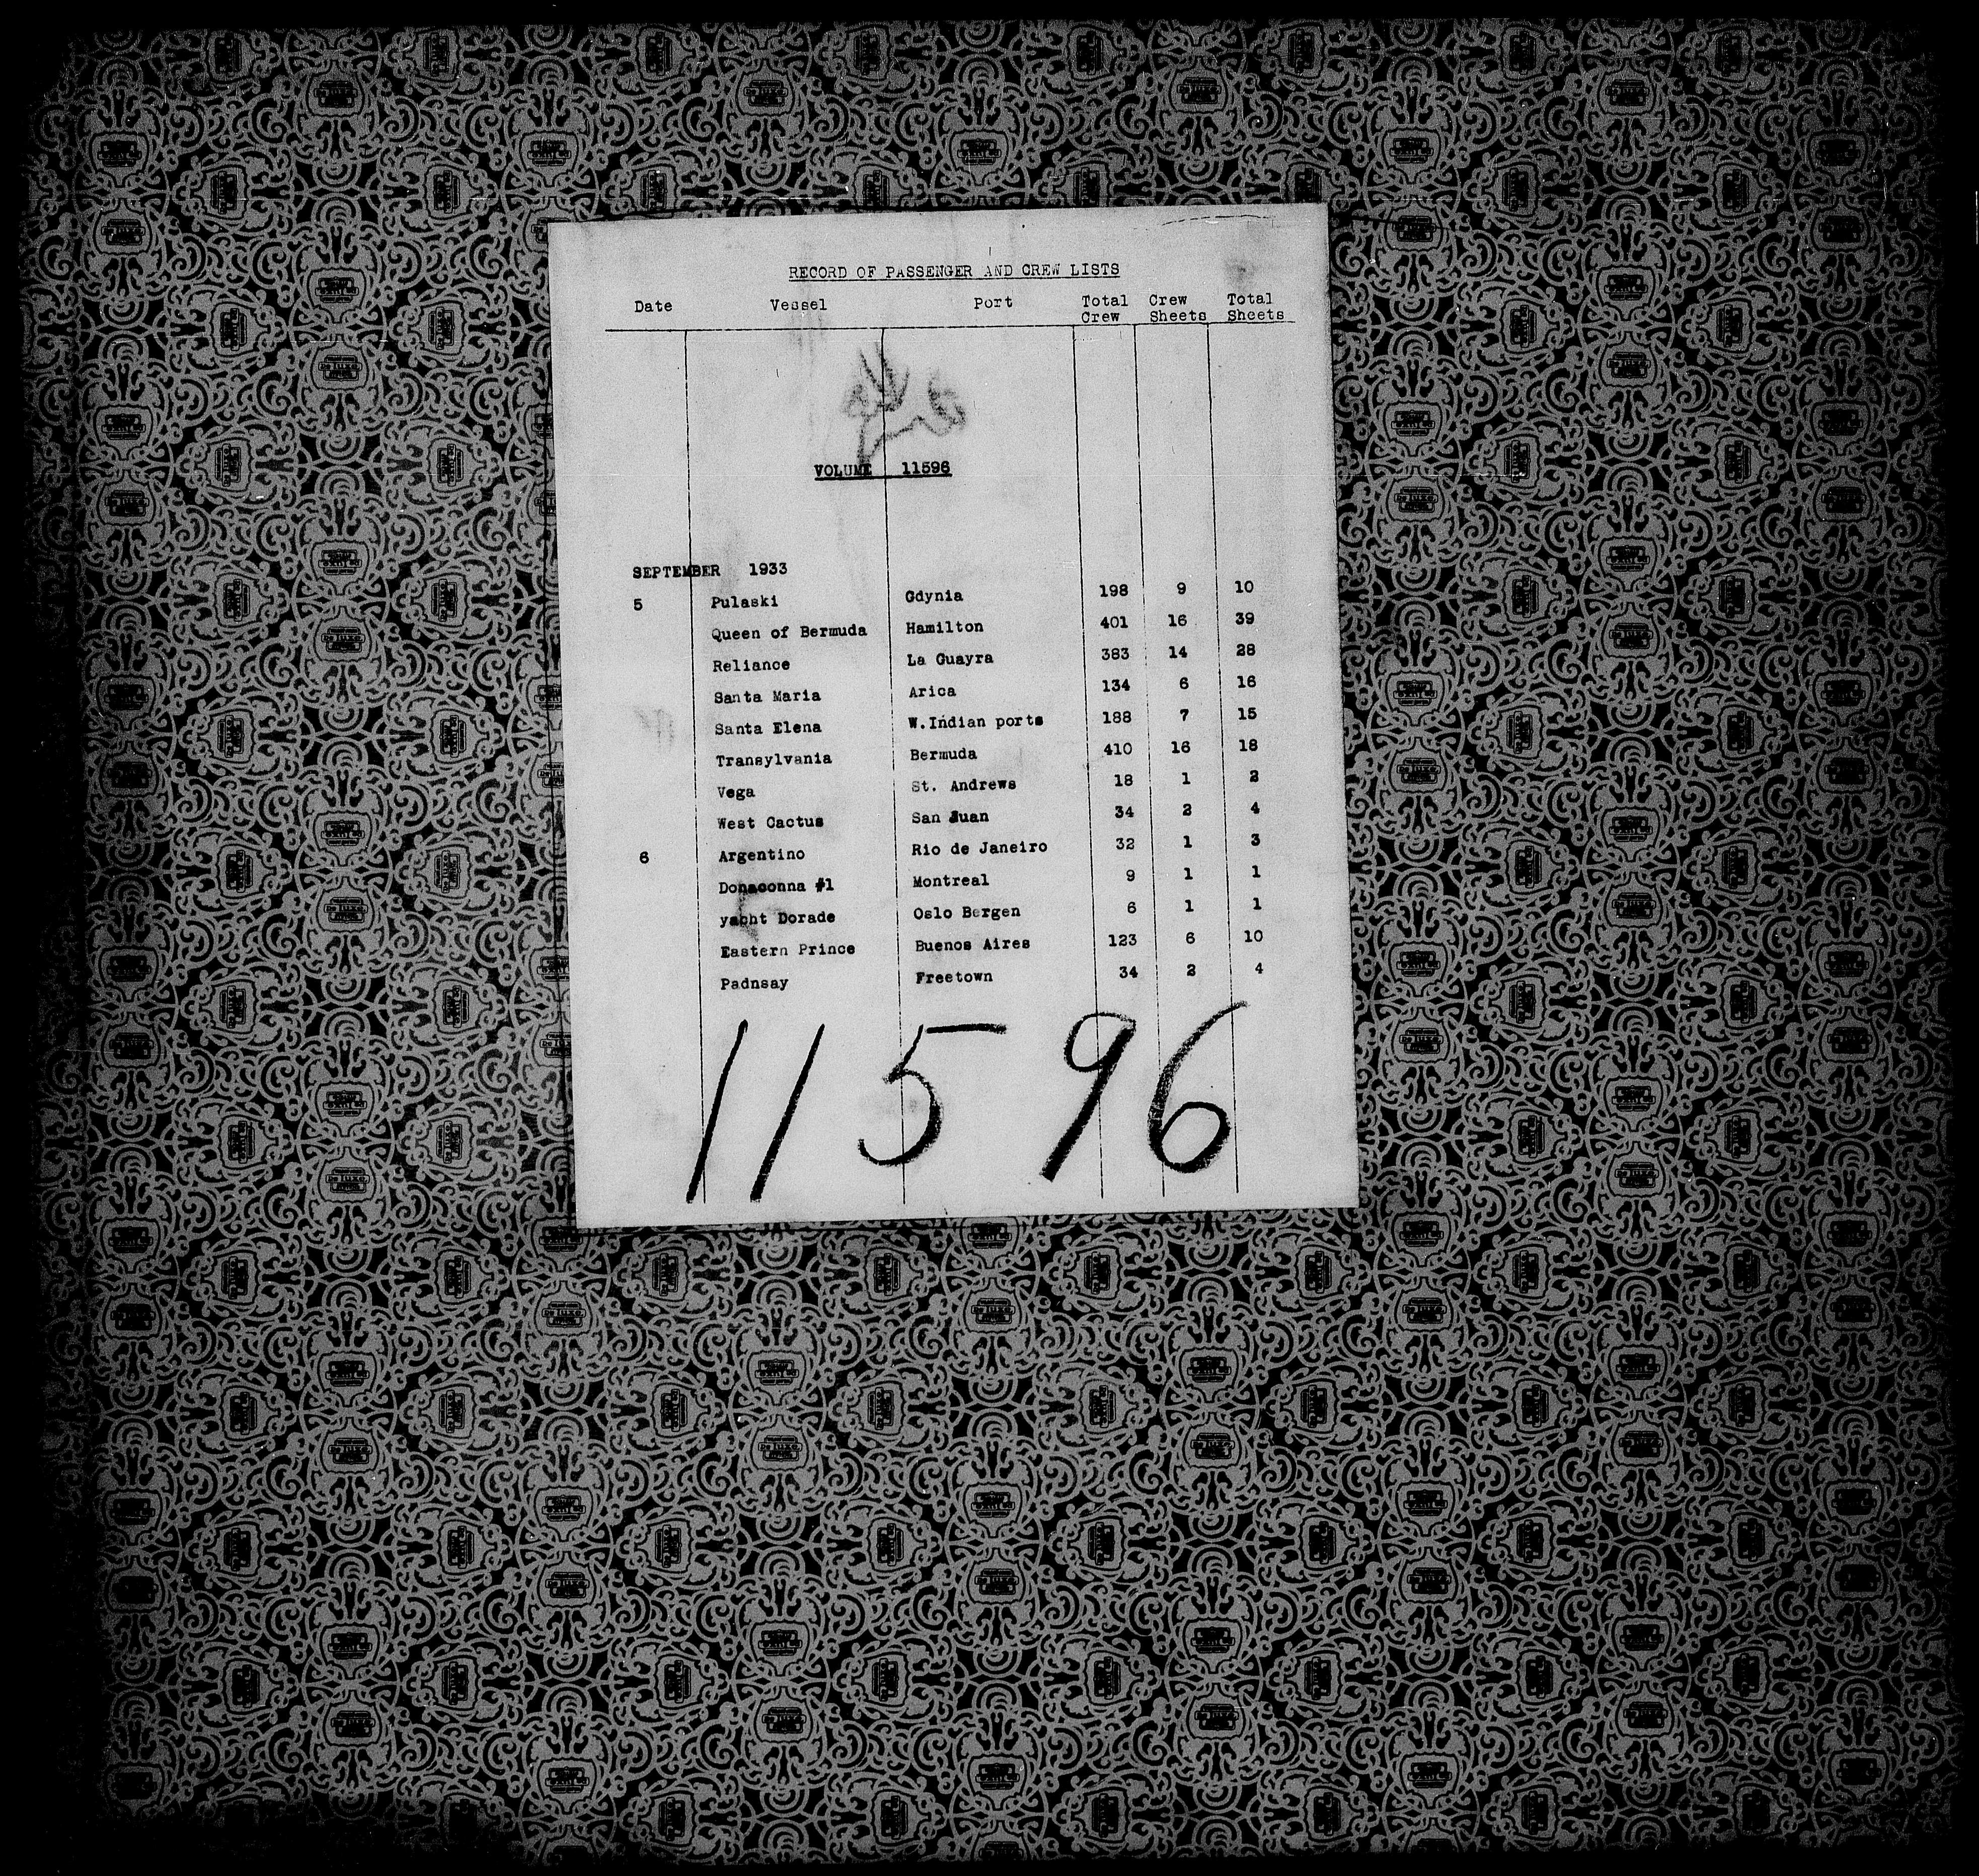 RECORD OF PASSENGER AND CREW LISTS
Date Vessel Port Total Crew Crew Sheets Total Sheets
VOLUME 11596
SEPTEMBER 1933
5 Pulaski Gdynia 198 9 10
Queen of Bermuda Hamilton 401 16 39
Reliance La Guayra 383 14 28
Santa Maria Arica 134 6 16
Santa Elena W.Indian ports 188 7 15
Transylvania Bermuda 410 16 18
Vega St. Andrews 18 1 2
West Cactus San Juan 34 2 4
6 Argentino Rio de Janeiro 32 1 3
Donaconna #1 Montreal 9 1 1
yacht Dorade Oslo Bergen 6 1 1
Eastern Prince Buenos Aires 123 6 10
Padnsay Freetown 34 2 4
11596